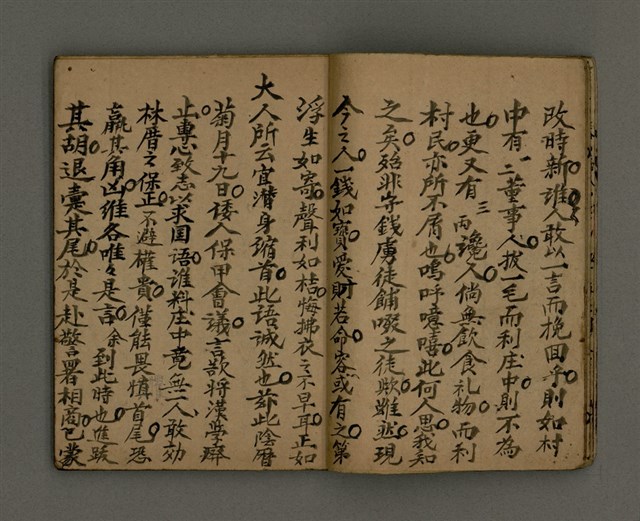 改時新誰人敢以一言而挽回乎則如村
中有一二董事人拔一毛而利庄中則不為
也更又有兩三讒人倘無飲食礼物而利
村民亦所不屑也嗚呼噫嘻此何人思我知
之矣殆非守錢虜徒餔啜之徒歟雖然現
今之人一錢如寶愛財若命容或有之第
浮生如寄聲利如桔悔拂衣之不早耳正如
大人所云宜潛身縮首此語誠然也茲此陰曆
菊月十九日倭入保甲會議言欲將漢學廢
止專心致志以求国语誰料庄中竟無一人敢効
林厝之保正不避權貴僅能畏慎首尾恐
羸其角凶谁各唯々是言余到此時也進跋
其胡退疐其尾於是赴警署相商已蒙